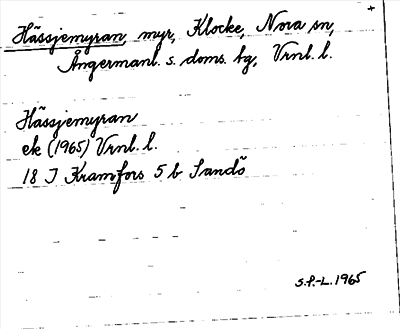 Hässjemyran, myr, Klocke, Nora sn,
Ångermanl. s. doms. hg, Vrnl. l.
Hässjemyran
ek (1965) Vrnl. l.
18 I Kramfors 5 b Sandö
S.P.-L. 1965